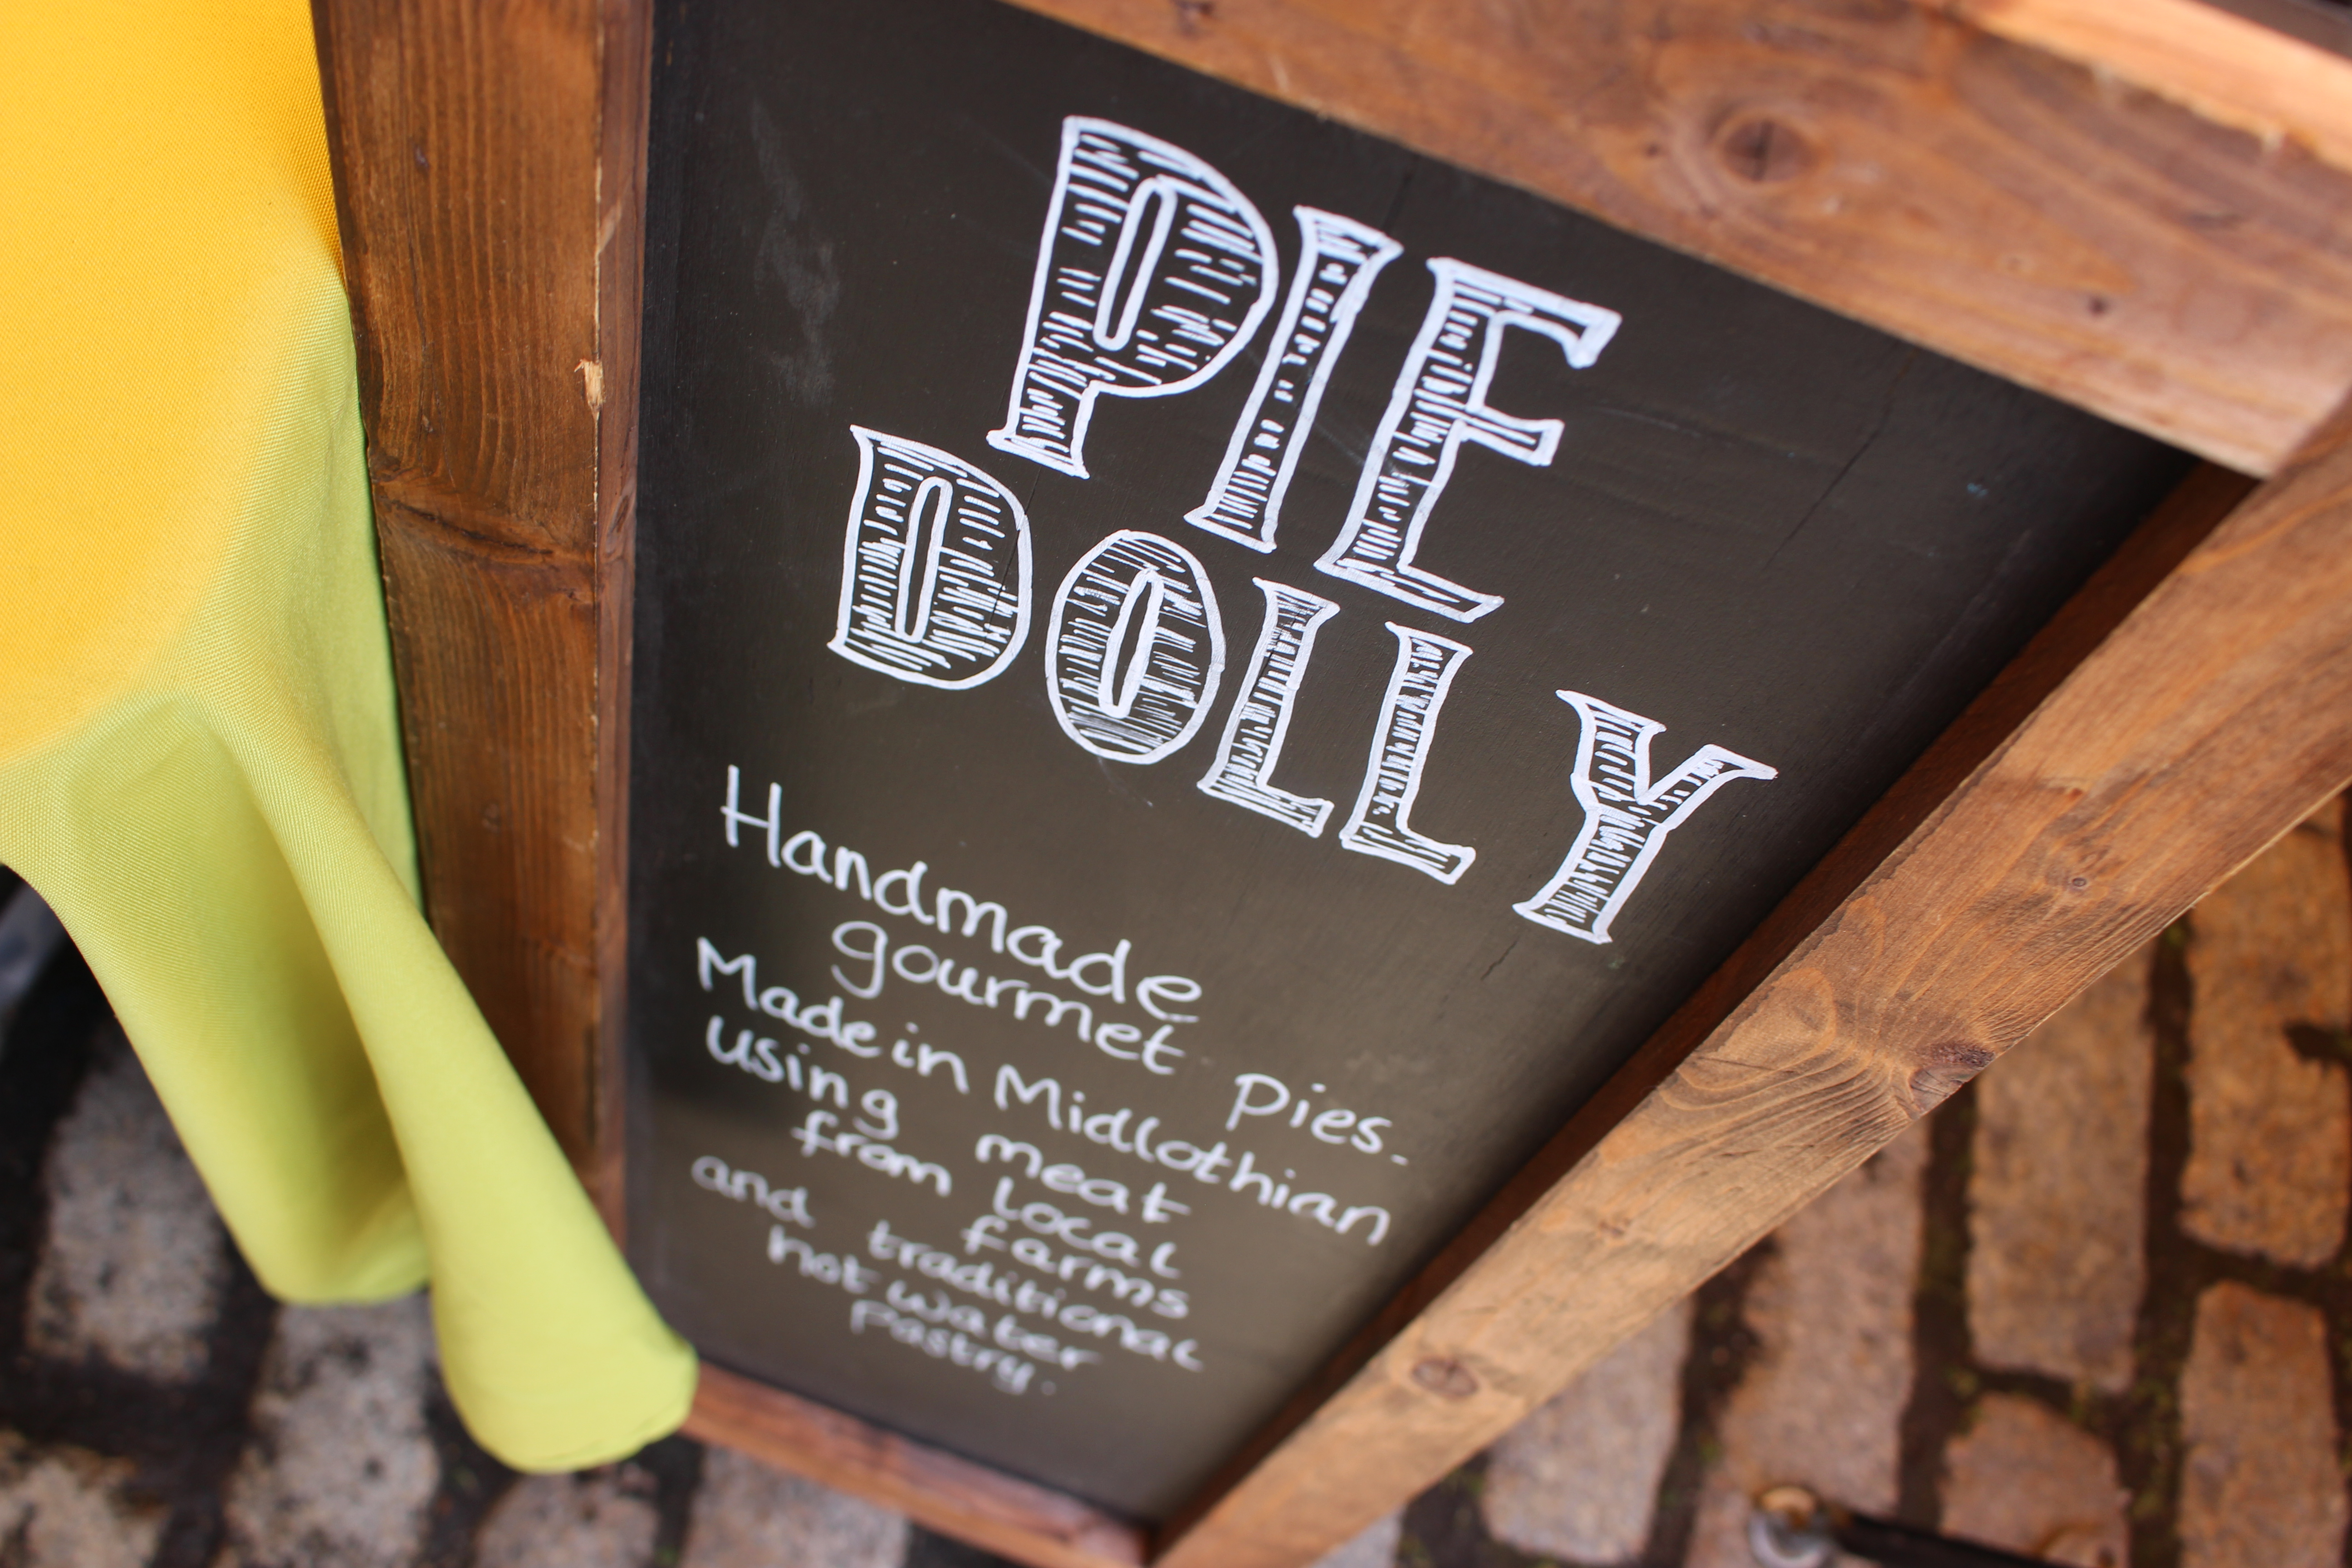 PIE
DOLLY
Handmade
gourmet Pies.
Made in Midlothian
using meat
from local
farms
and traditional
hot water
pastry.